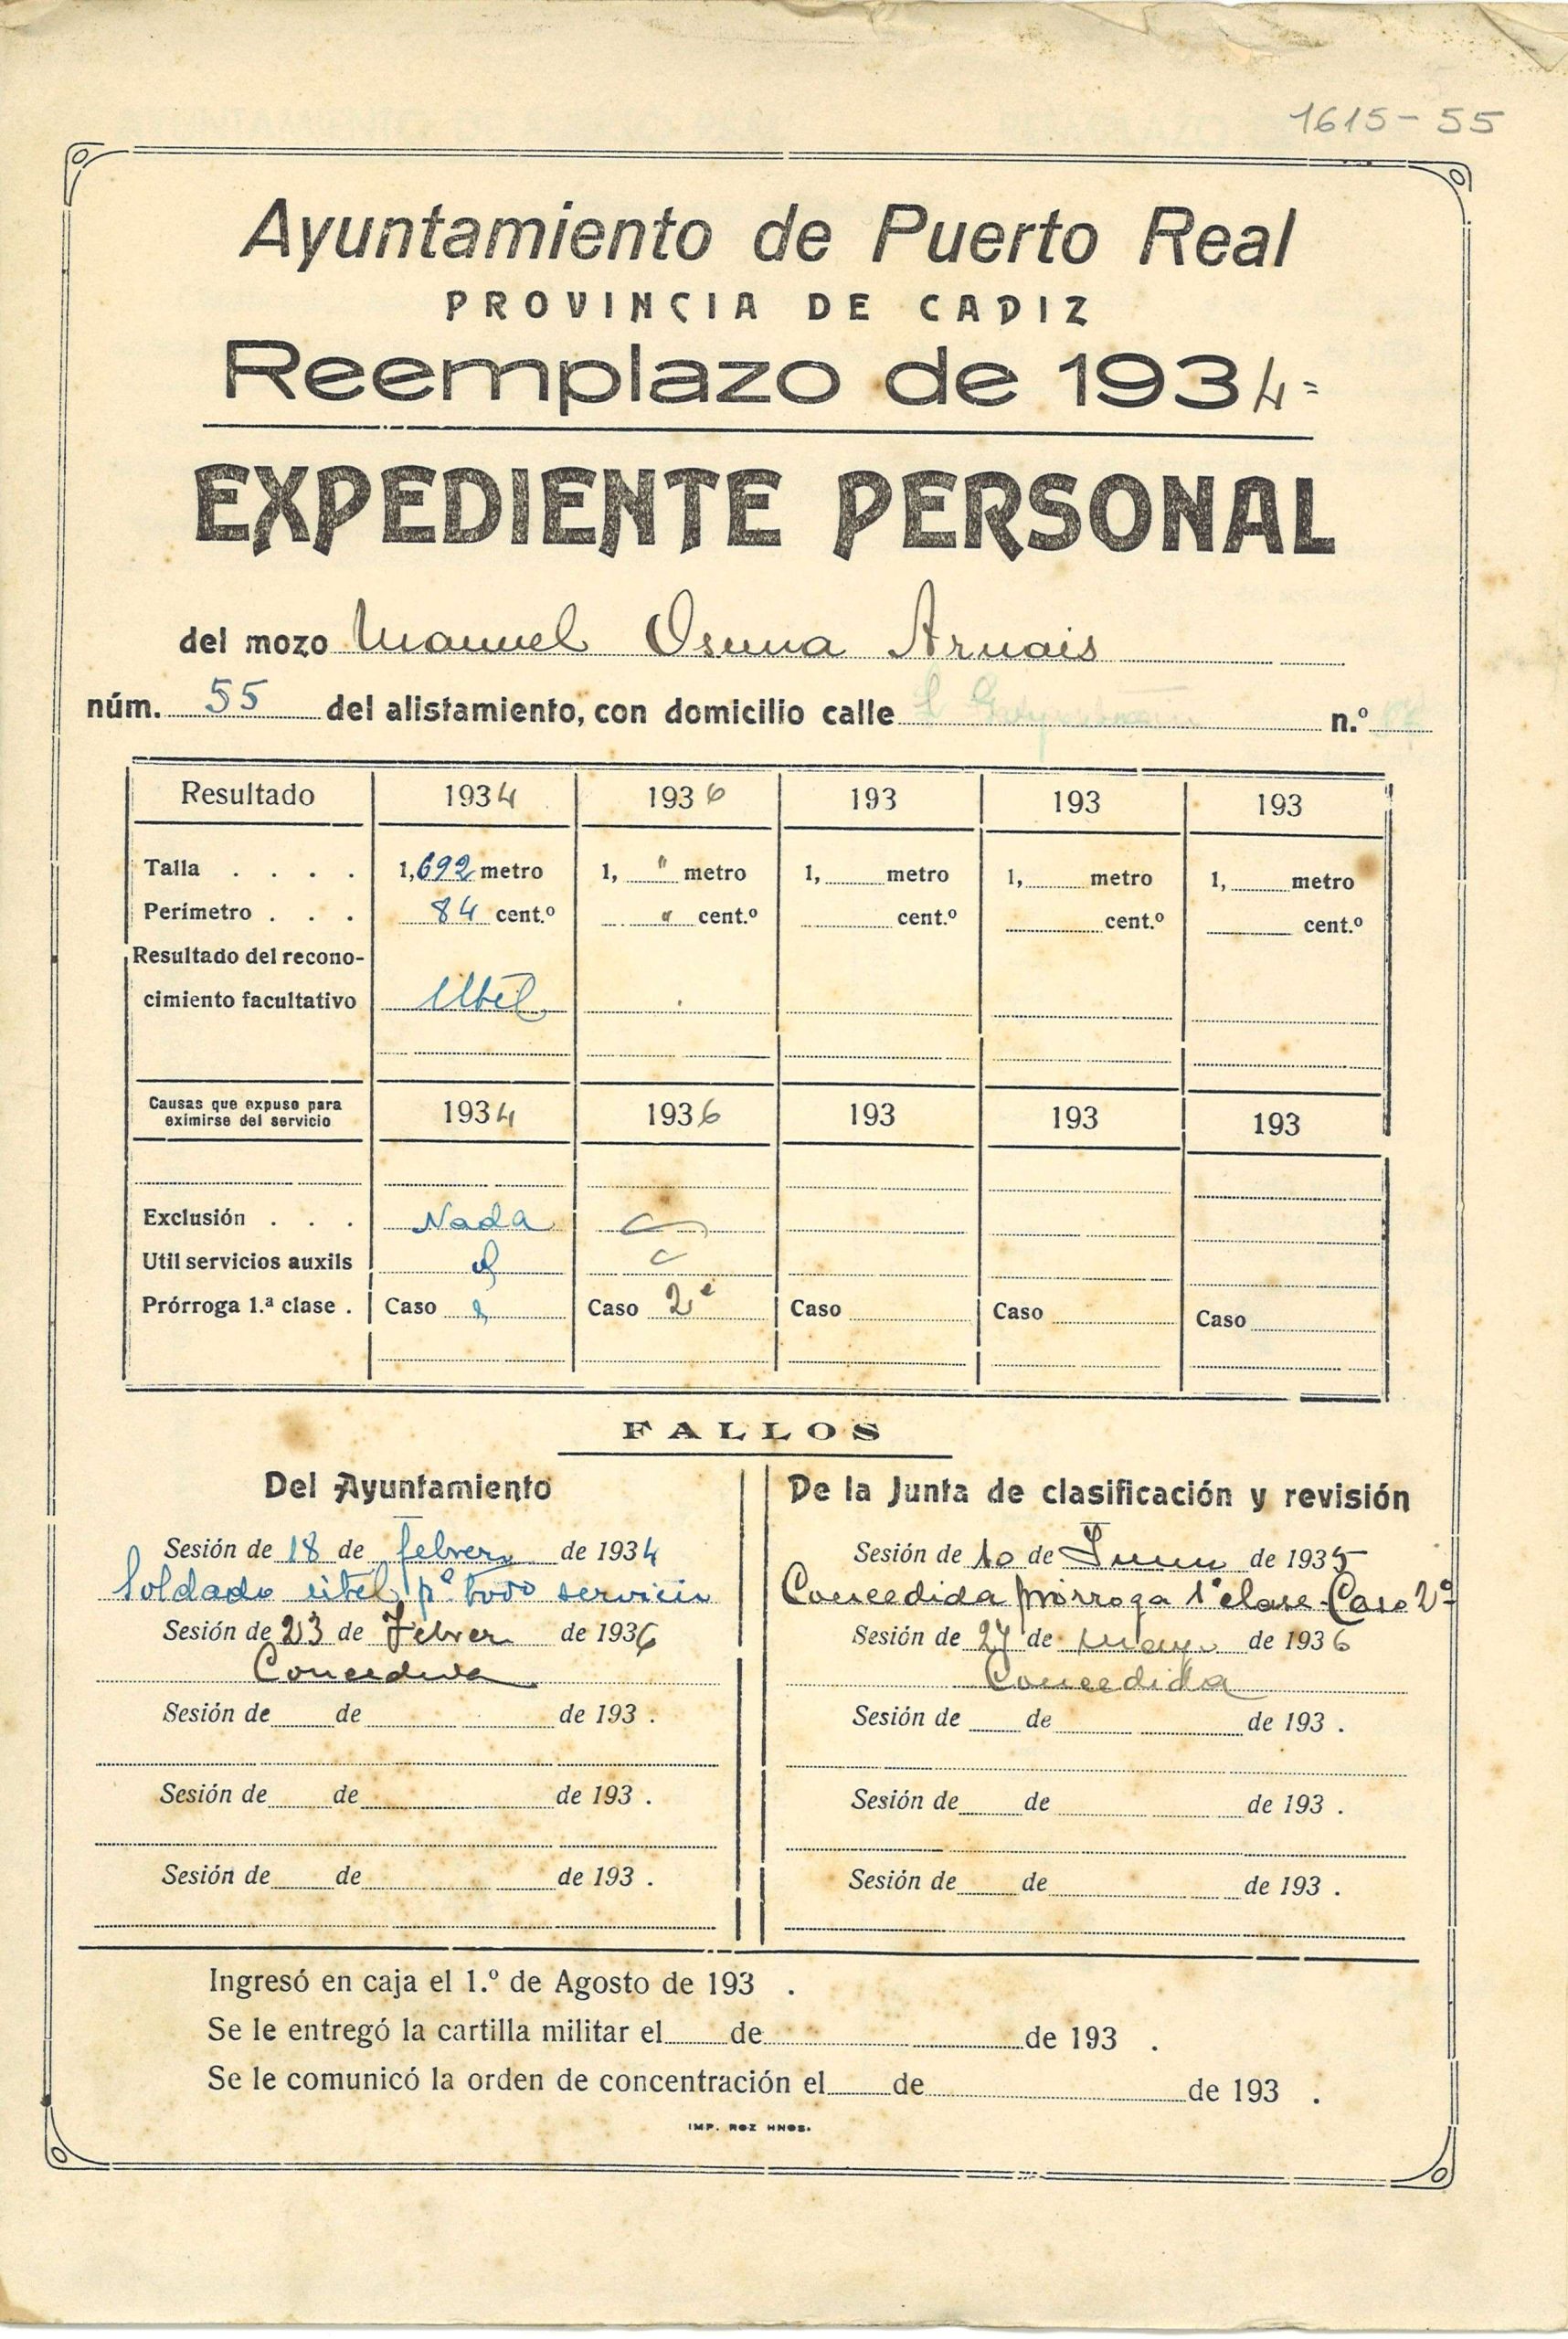 1615-55
Ayuntamiento de Puerto Real
PROVINCIA DE CADIZ
Reemplazo de 1934=
EXPEDIENTE PERSONAL
del mozo Manuel Osuna Arnais
núm. 55 del alistamiento, con domicilio calle n.º
Resultado 1934 1936 193 193 193
Talla . . . . 1,692 metro 1, " metro 1, metro 1, metro 1, metro
Perímetro . . . 84 cent.º " cent.º cent.º cent.º cent.º
Resultado del recono-
cimiento facultativo Util
Causas que expuso para
eximirse del servicio 1934 1936 193 193 193
Exclusión . . . Nada
Util servicios auxils
Prórroga 1.ª clase . Caso Caso 2º Caso Caso Caso
FALLOS
Del Ayuntamiento
Sesión de 18 de febrero de 1934
Soldado útil pª todo servicio
Sesión de 23 de Febrero de 1936
Concedida
Sesión de de de 193 .
Sesión de de de 193 .
Sesión de de de 193 .
De la Junta de clasificación y revisión
Sesión de 10 de Junio de 1935
Concedida prórroga 1ª clase-Caso 2º
Sesión de 27 de mayo de 1936
Concedida
Sesión de de de 193 .
Sesión de de de 193 .
Sesión de de de 193 .
Ingresó en caja el 1.º de Agosto de 193 .
Se le entregó la cartilla militar el de de 193 .
Se le comunicó la orden de concentración el de de 193 .
IMP. ROZ HNOS.